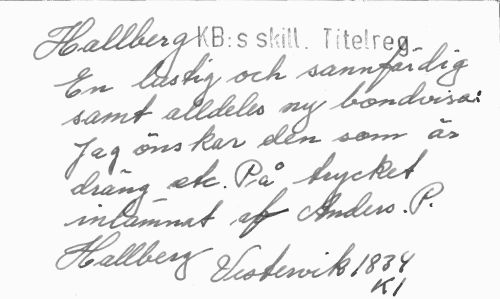 Hallberg KB:s skill. Titelreg.
En lustig och sannfärdig
samt alldeles ny bondvisa:
Jag önskar den som är
dräng etc. På trycket
inlämnat af Anders. P.
Hallberg Vestervik 1834
K1